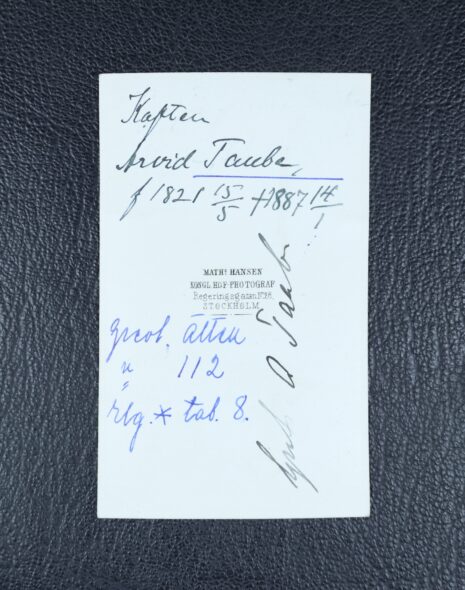 Kapten
Arvid Taube,
f 1821 15/5 † 1887 14/1
MATHS HANSEN
KONGL HOF-PHOTOGRAF
Regeringsgatan No 26.
STOCKHOLM
Grefl. ätten
n 112
rlg. * tab. 8.
A Taube